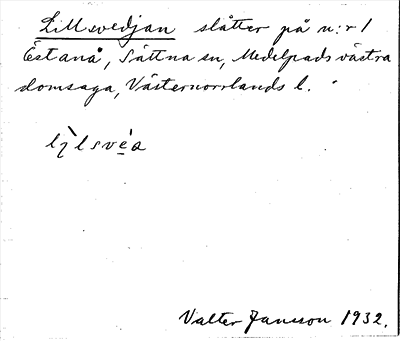 Lillsvedjan slåtter på n:r 1
Östanå, Sättna sn, Medelpads västra
domsaga, Västernorrlands l.
Valter Jansson 1932.